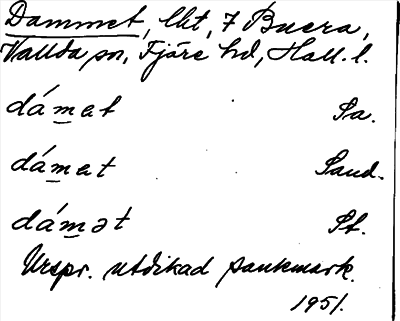 Dammet, lht, 7 Buera,
Vallda sn, Fjäre hd, Hall. l.
dám̲et Sa.
dám̲et Sand.
dám̲ət St.
Urspr. utdikad sankmark.
1951.